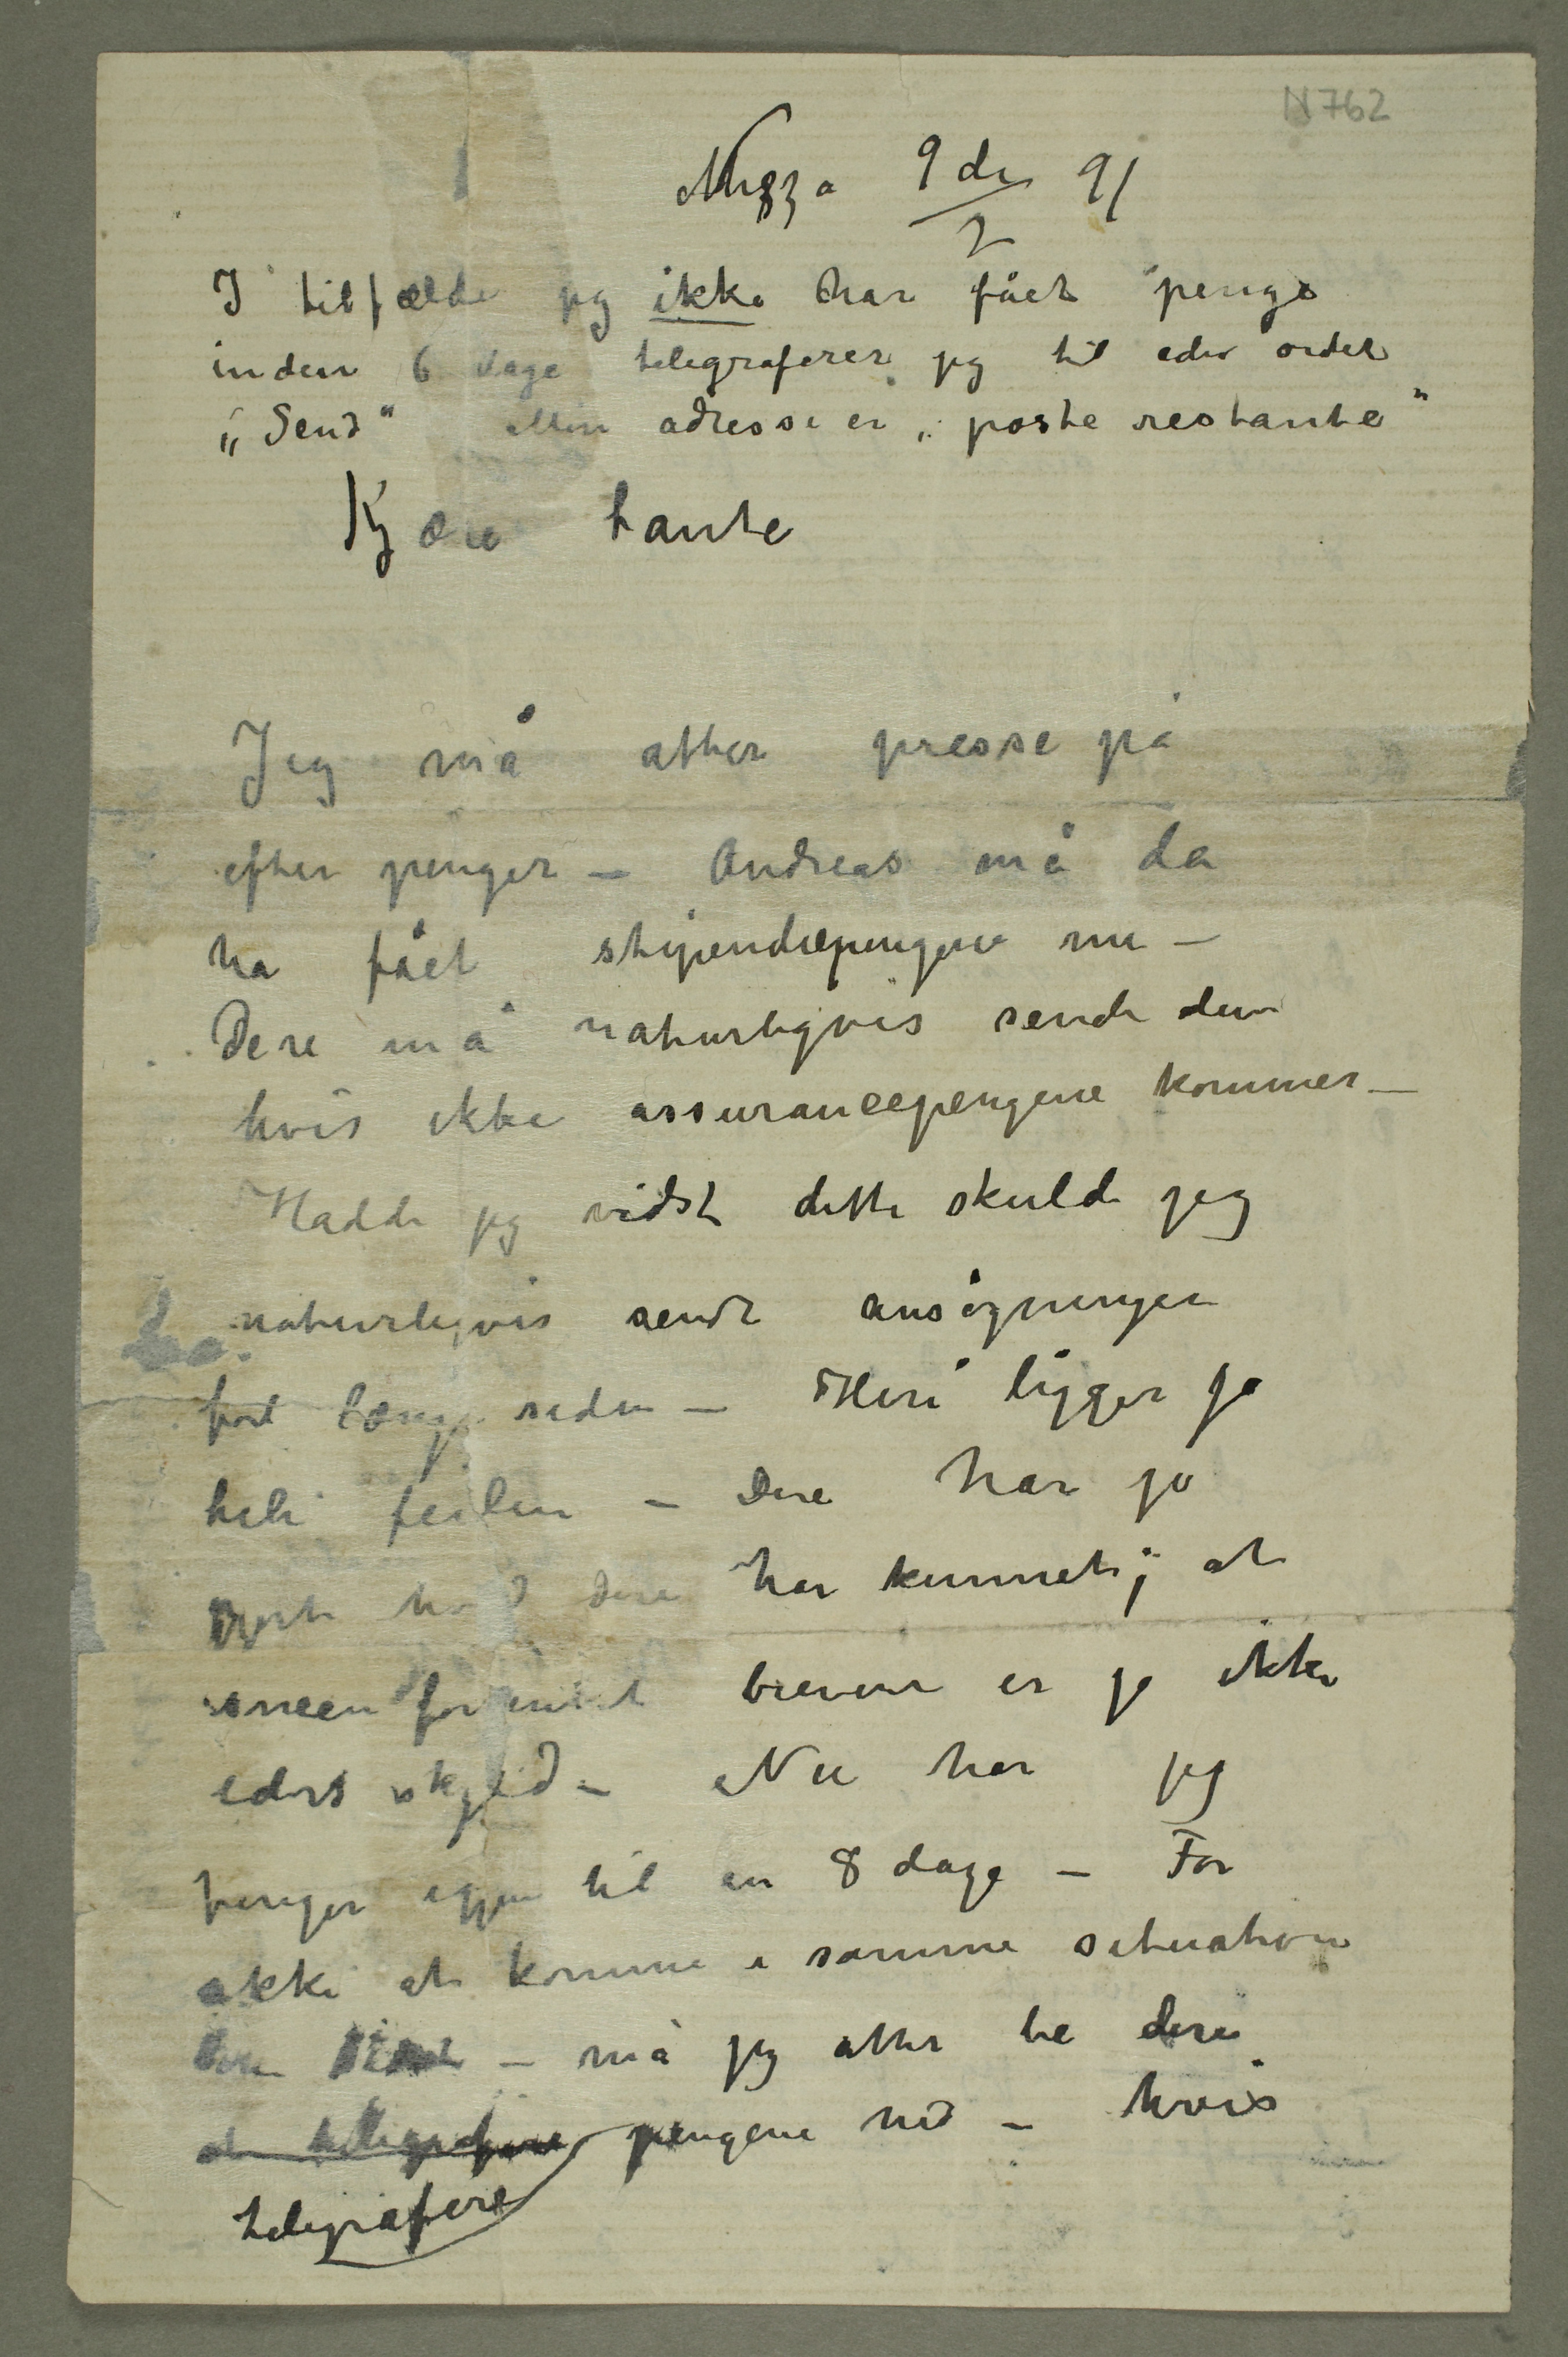 N762
Nizza 9de/2 91
I tilfælde jeg ikke har fået penge
inden 6 dage telegraferer jeg til eder ordet
„Send" Min adresse er „poste restante"
Kjære tante
Jeg må atter presse på
efter penger – Andreas må da
ha fået stipendiepengene nu –
Dere må naturligvis sende dem
hvis ikke assurancepengene kommer –
Hadde jeg vidst dette skulde jeg
naturligvis sendt ansøgningen
for længe siden – Heri ligger jo
hele feilen – Dere har jo
gjort hvad dere har kunnet; at
sneen forsinket brevene er jo ikke
eders skyld – Nu har jeg
penger igjen til en 8 dage – For
ikke at komme i samme situation
som sidst – må jeg atter be dere
at telegrafere pengene ned – hvis
telegrafere